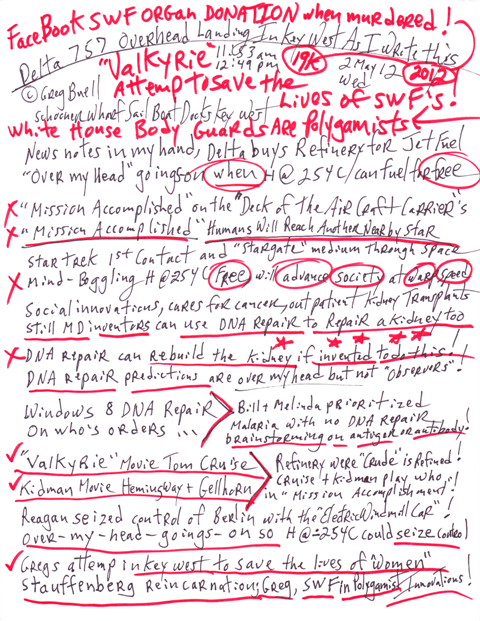 FaceBook SWF Organ DONATION when murdered!
Delta 757 Overhead Landing In Key West As I Write this
"Valkyrie" 11:53 am 12:49 pm 19K 2 May 12 Wed 2012
© Greg Buell Attempt to Save the
Schooner Wharf Sail Boat Docks Key West Lives of SWF's!
White House Body Guards Are Polygamists
News notes in my hand, Delta buys Refinery for Jet Fuel
"Over my Head" goings on when H@-254C/can fuel the free
X "Mission Accomplished" on the "Deck of The Air Craft Carrier"s
X "Mission Accomplished" Humans Will Reach Another Nearby Star
Star Trek 1st Contact and "Stargate" medium through space
X Mind-Boggling H@-254C Free will advance society at warp speed
Social innovations, cures for cancer, out patient Kidney Transplants
still MD inventors can use DNA Repair to Repair a kidney too
X DNA repair can rebuild the kidney if invented to do this!!
DNA repair predictions are over my head but not "Observers"!
Windows 8 DNA Repair
On who's orders ...
Bill + Melinda prioritized
Malaria with no DNA Repair
brainstorming on antigen or antibody!
"Valkyrie" Movie Tom Cruise
Kidman Movie Hemingway + Gellhorn
Refinery were "Crude" is Refined!
Cruise + Kidman play who
in "Mission Accomplishment!
Reagan seized control of Berlin with the "Electric Windmill Car"!
Over-my-head-goings-on so H@-254C could seize control
Gregs attemp in key west to save the lives of "women"
Stauffenberg Reincarnation; Greg, SWF in Polygamist Innovations!